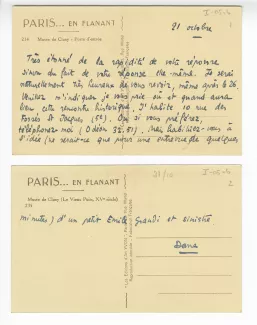 PARIS... EN FLANANT
234 Musée de Cluny - Porte d'entrée
21 octobre
Très étonné de la rapidité de votre réponse
sinon du fait de votre réponse elle-même. Je serai
naturellement très heureux de vous revoir, même après le 26.
Veuillez m'indiquer je vous prie où et quand aura
lieu cette rencontre historique. J'habite 10 rue des
Fossés St Jacques (5e). Ou si vous préférez,
téléphonez-moi (Odéon 32.57). Mais habituez-vous à
l'idée (ne serait-ce que pour une entrevue de quelques
PARIS... EN FLANANT
Musée de Cluny (Le Vieux Puits, XVe siècle).
233
21/10
minutes) d'un petit Emile grandi et sinistre.
Dane